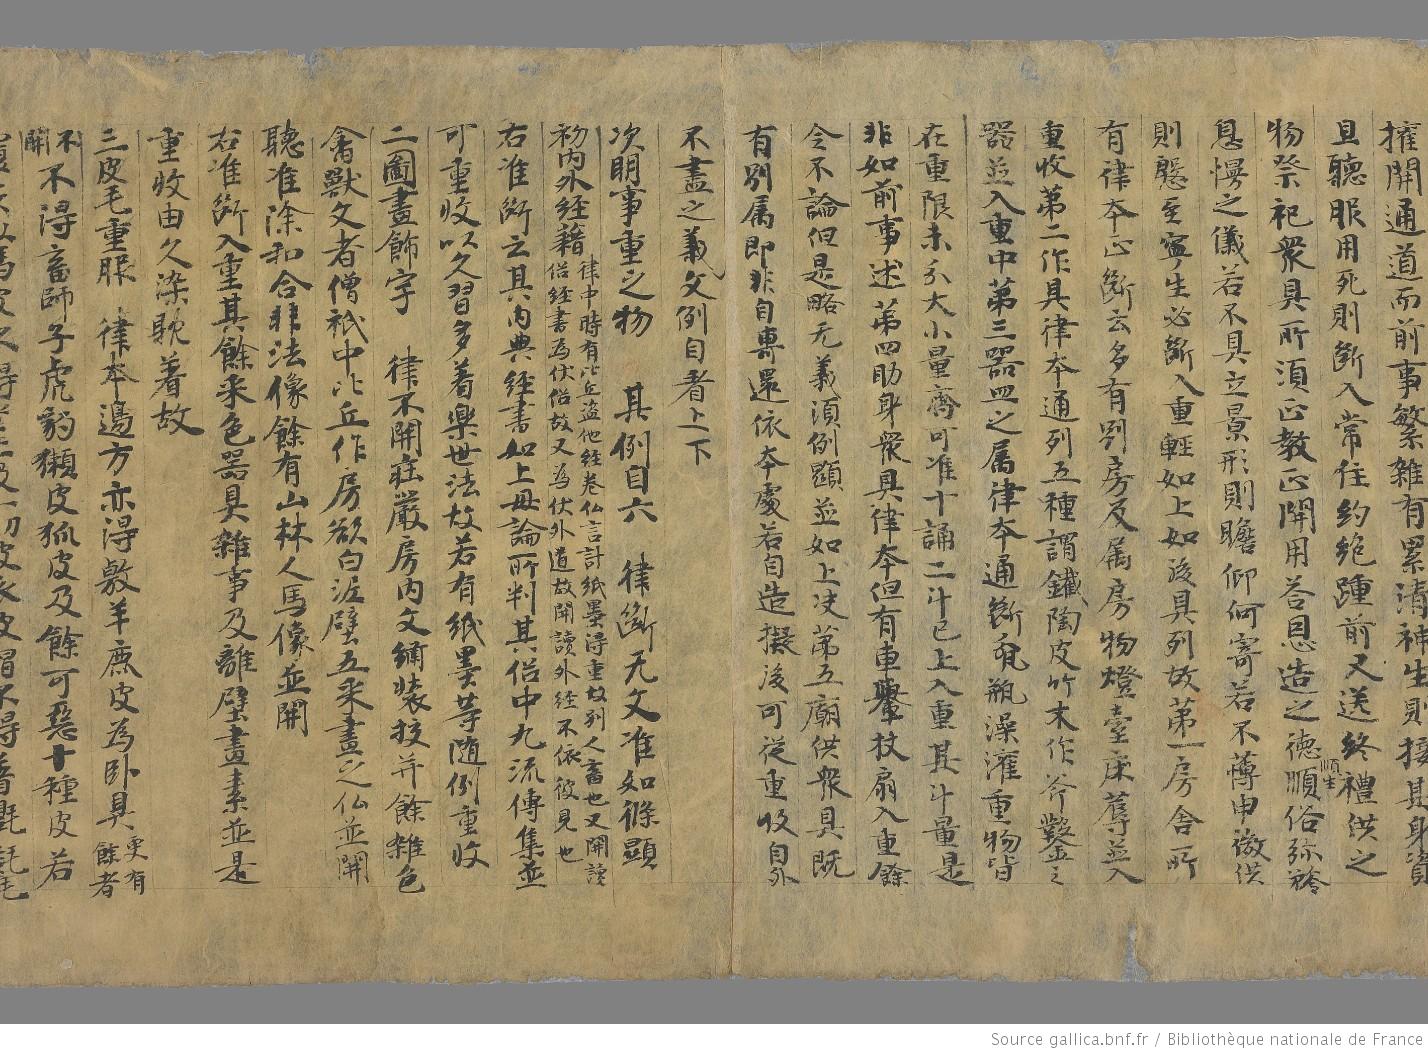 擁開通道而前事繁雜有累清補生則接其身資
且聽服用死則斷入常住約絕踵前又送終禮供之
物祭祀衆具所須正教正開用荅恩造之德順俗弥
順生
息慢之儀若不具立景形則瞻仰何寄若不薄申
供
則慇至寧生必斷入重輕如上如後具列故第一房舍所
有律本正斷云多有別房及属房物燈臺床蓐並入
重收第二作具律本通列五種謂鐵陶皮竹木作斧鑿之
器並入重中第三器皿之属律本通斷瓶澡灌重物皆
在重限未分大小量齊可准十誦二斗已上入重其斗量是
非如前事述第四助身衆具律本但有車轝杖扇入重餘
今不論但是略无義須例顯並如上決第五廟供衆具既
有別属即非自專還依本處若自造擬後可從重收自外
不盡之義文例自者上下
次明事重之物 其例自六 律斷无文准如條顯
初內外經籍 律中時有比丘盜他經卷仏言計紙墨得重故列人畜也又開讀
俗經書為伏俗故又為伏外道故開讀外經不依彼見也
右准斷云其內典經書如上毋論所判其俗中九流傳集並
可重收以久習多着樂世法故若有紙墨等随例重收
二圖畫飾字 律不開莊嚴房內文繡裝挍并餘雜色
禽獸文者僧祇中比丘作房欲白泥壁五采畫之仏並開
聽准除和合非法像餘有山林人馬像並開
右准斷入重其餘采色器具雜事及離壁畫素並是
重收由久染耽着故
三皮毛重服 律本邊方亦得敷羊鹿皮為卧具 更有
餘者
不
開
不得畜師子虎豹獺皮狐皮及餘可惡十種皮若